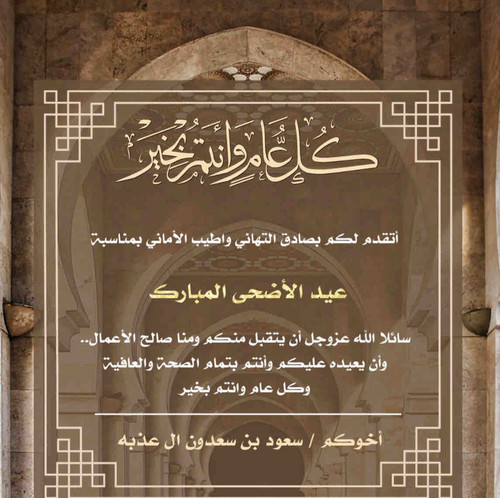 كُل عَّام وَأَنتم بُخير
أتقدم لكم بصادق التهاني واطيب الأماني بمناسبة
عيد الأضحى المبارك
سائلا الله عزوجل أن يتقبل منكم ومنا صالح الأعمال..
وأن يعيده عليكم وأنتم بتمام الصحة والعافية
وكل عام وانتم بخير
أخوكم / سعود بن سعدون ال عذبه